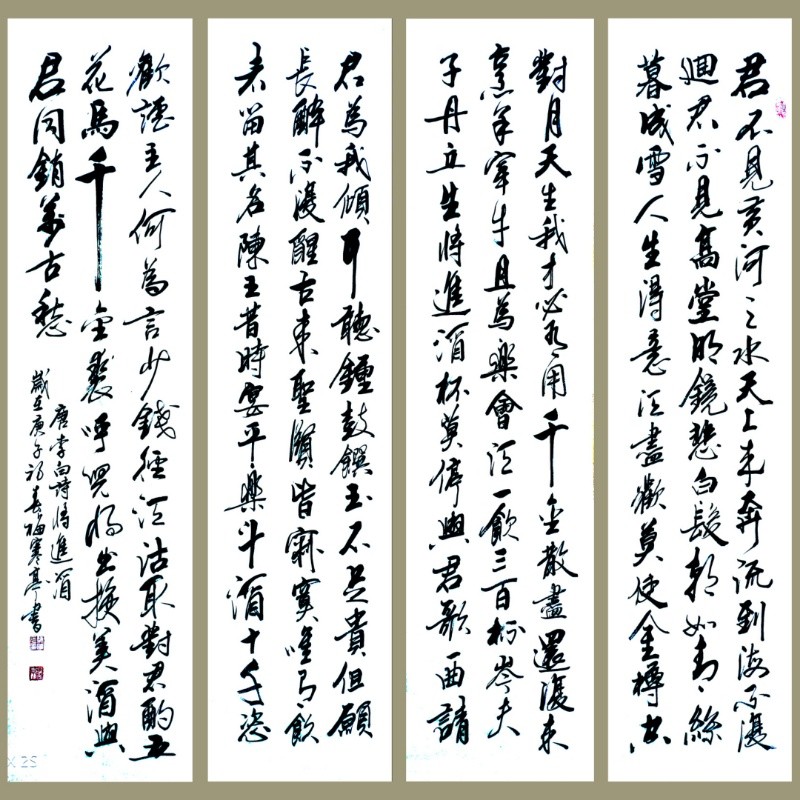 君不見黃河之水天上来奔流到海不復
迴君不見高堂明鏡悲白髮朝如青絲
暮成雪人生得意須盡歡莫使金樽空
對月天生我才必有用千金散盡還復来
烹羊宰牛且為樂會須一飲三百杯岑夫
子丹丘生將進酒杯莫停與君歌一曲請
君為我傾耳聽鐘鼓饌玉不足貴但願
長醉不復醒古来聖賢皆寂寞唯有飲
者留其名陳王昔時宴平樂斗酒十千恣
歡謔主人何為言少錢徑須沽取對君酌五
花馬千金裘呼兒將出換美酒與
君同銷萬古愁
唐李白詩將進酒
歲在庚子初春梅寒亭書